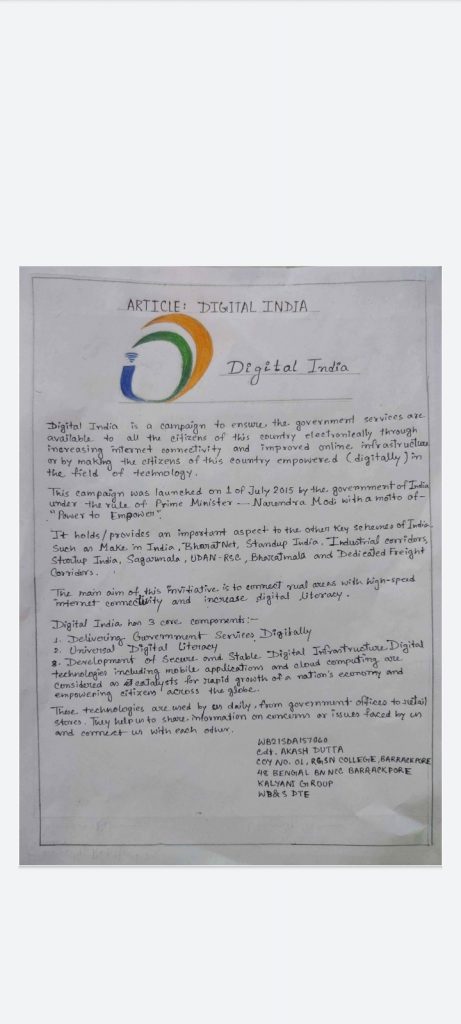 ARTICLE: DIGITAL INDIA
Digital India
Digital India is a campaign to ensure the government services are
available to all the citizens of this country electronically through
increasing internet connectivity and improved online infrastructure
or by making the citizens of this country empowered (digitally) in
the field of technology.
This campaign was launched on 1 of July 2015 by the government of India
under the rule of Prime Minister — Narendra Modi with a motto of-
"Power to Empower".
It holds/provides an important aspect to the other key schemes of India
such as Make in India, BharatNet, Standup India. Industrial corridors,
Startup India, Sagarmala, UDAN-RSC, Bharatmala and Dedicated Freight
Corridors.
The main aim of this invitiative is to connect rual areas with high-speed
internet connectivity and increase digital literacy.
Digital India has 3 core components:-
1. Delivering Government Services Digitally
2. Universal Digital Literacy
3. Development of Secure and Stable Digital Infrastructure Digital
technologies including mobile applications and cloud computing are
considered as catalysts for rapid growth of a nation's economy and
empowering citizens across the globe.
These technologies are used by us daily, from government offices to retail
stores. They help us to share information on concerns or issues faced by us
and connect us with each other.
WB21SDA157060
Cdt. AKASH DUTTA
COY NO. 01, RGSN COLLEGE, BARRACKPORE
48 BENGAL BN NCC BARRACKPORE
KALYANI GROUP
WB&S DTE